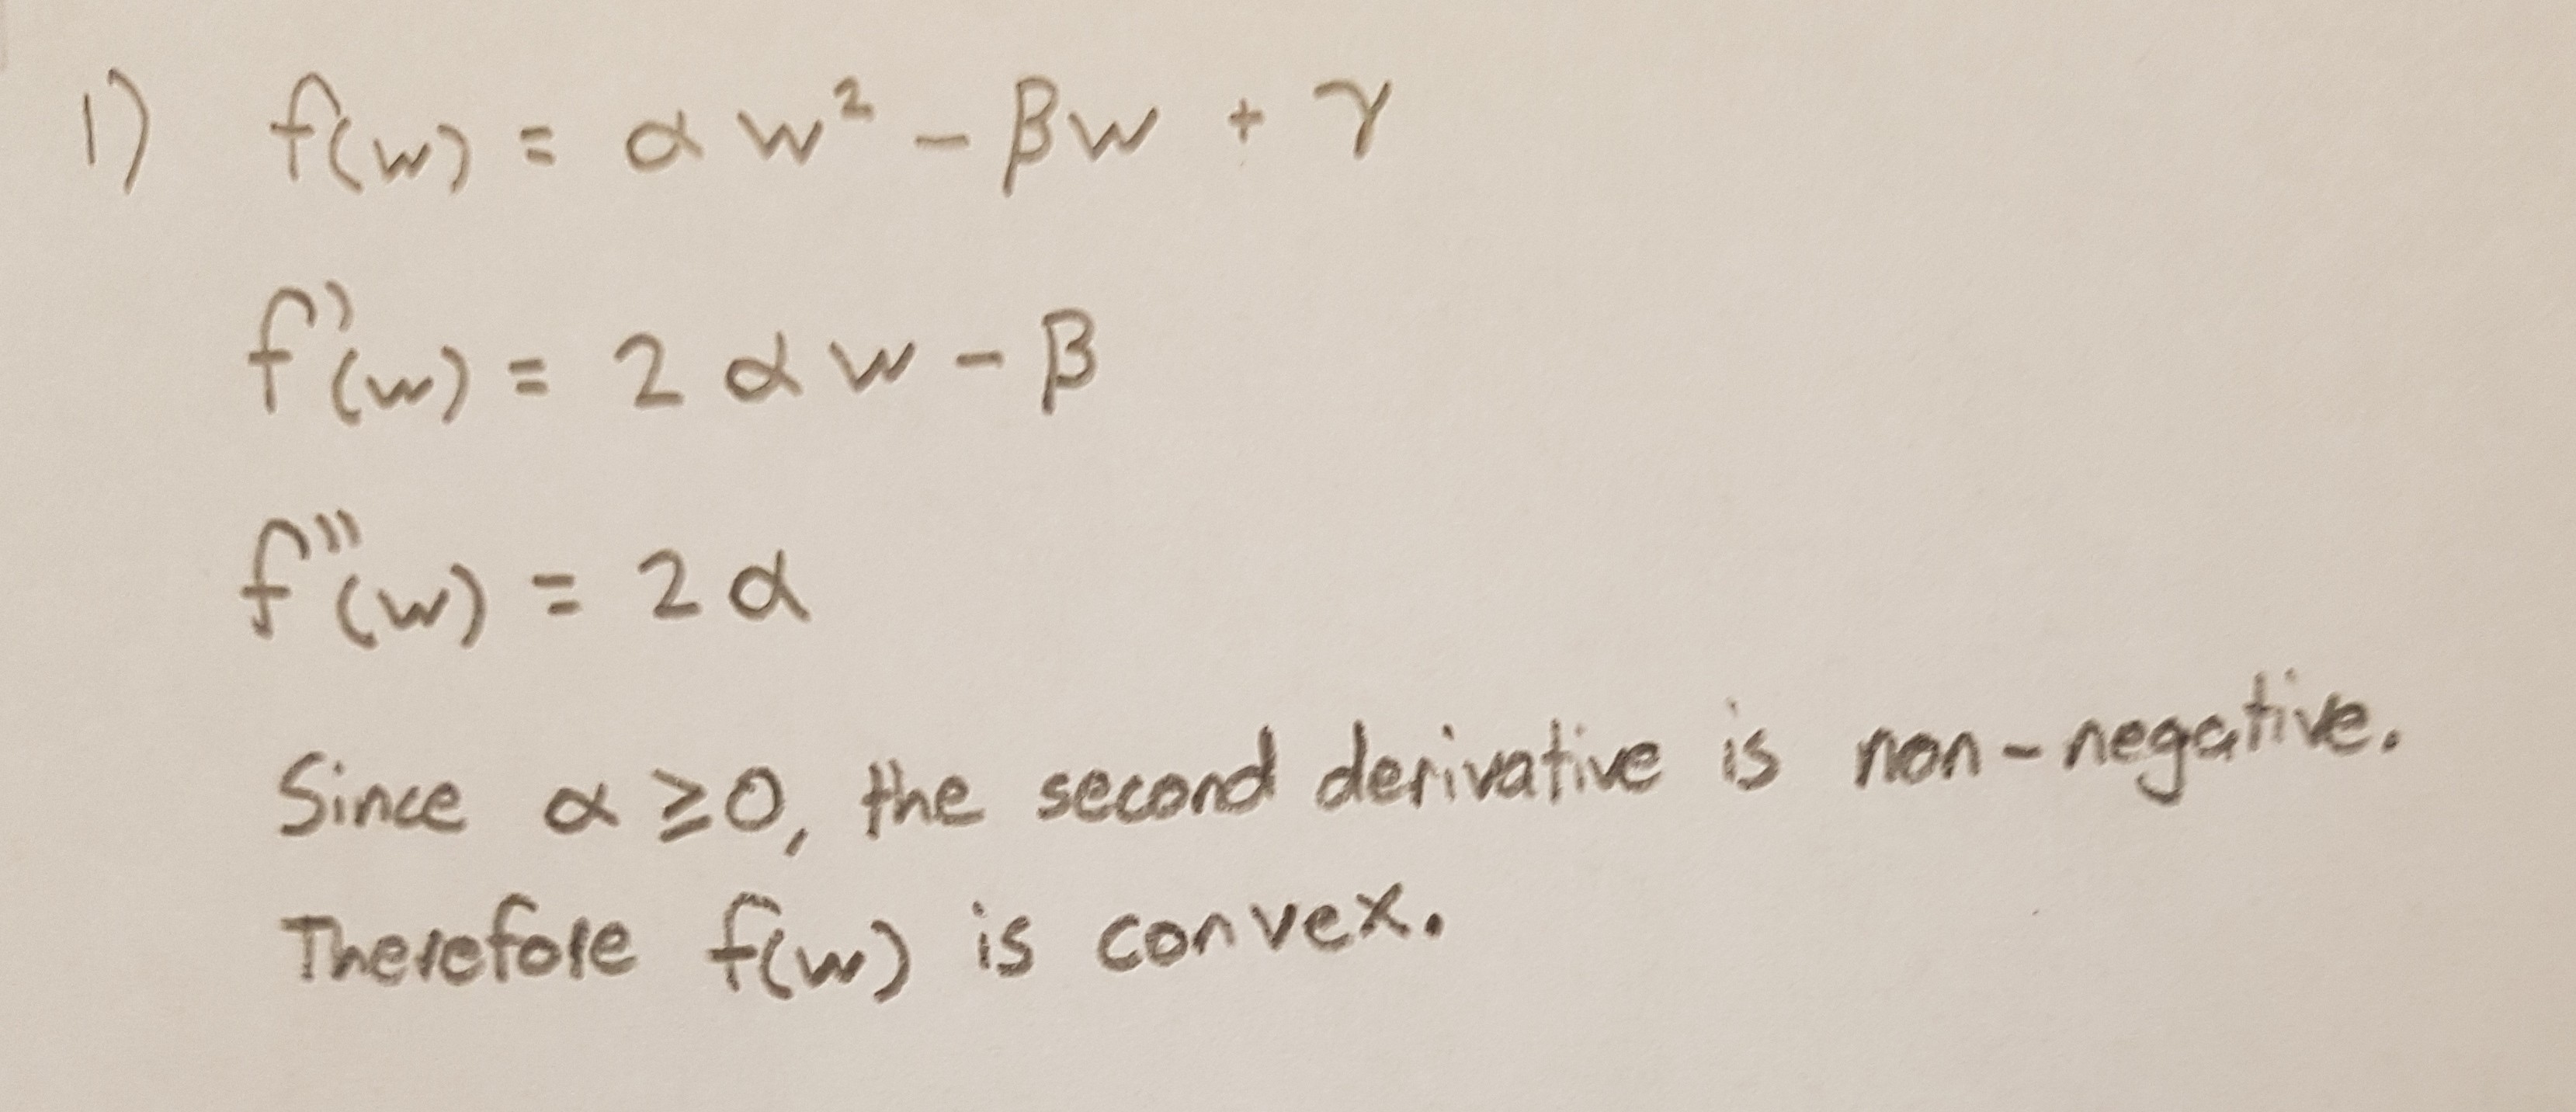 1) f(w) = αw² - βw + γ
f'(w) = 2αw - β
f''(w) = 2α
Since α ≥ 0, the second derivative is non-negative.
Therefore f(w) is convex.